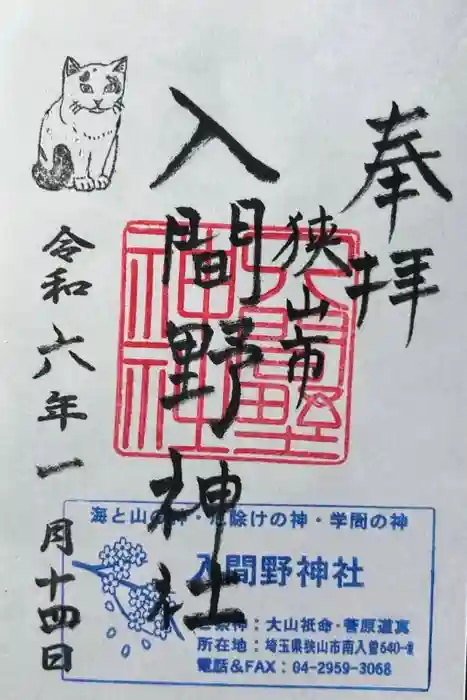 奉拝
狭山市
入間野神社
令和六年一月十四日
入間野神社
海と山の神・厄除けの神・学問の神
入間野神社
祭神：大山祇命・菅原道真
所在地：埼玉県狭山市南入曽640-
電話＆FAX：04-2959-3068